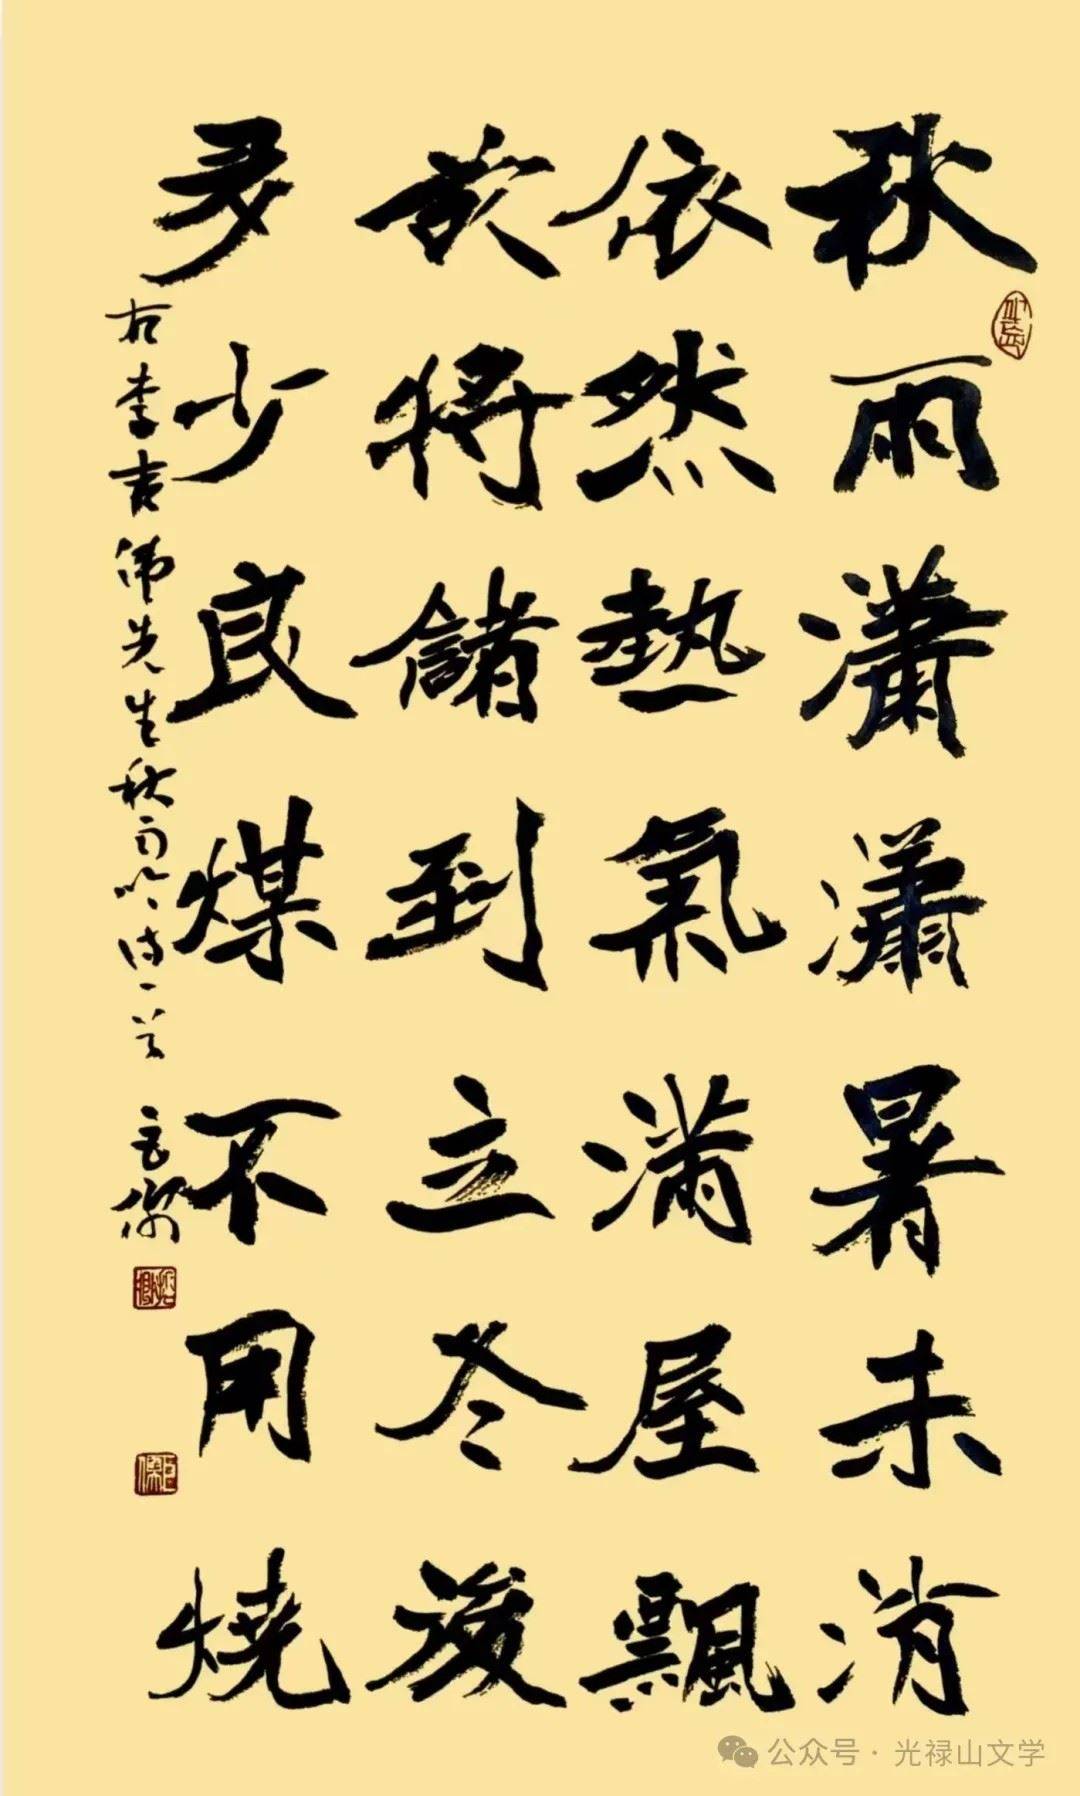 秋雨瀟瀟暑未消
依然熱氣滿屋飄
欲將儲到立冬後
多少良煤不用燒
右李吉佛先生秋雨吟诗一首 巨傑
公众号 · 光禄山文学